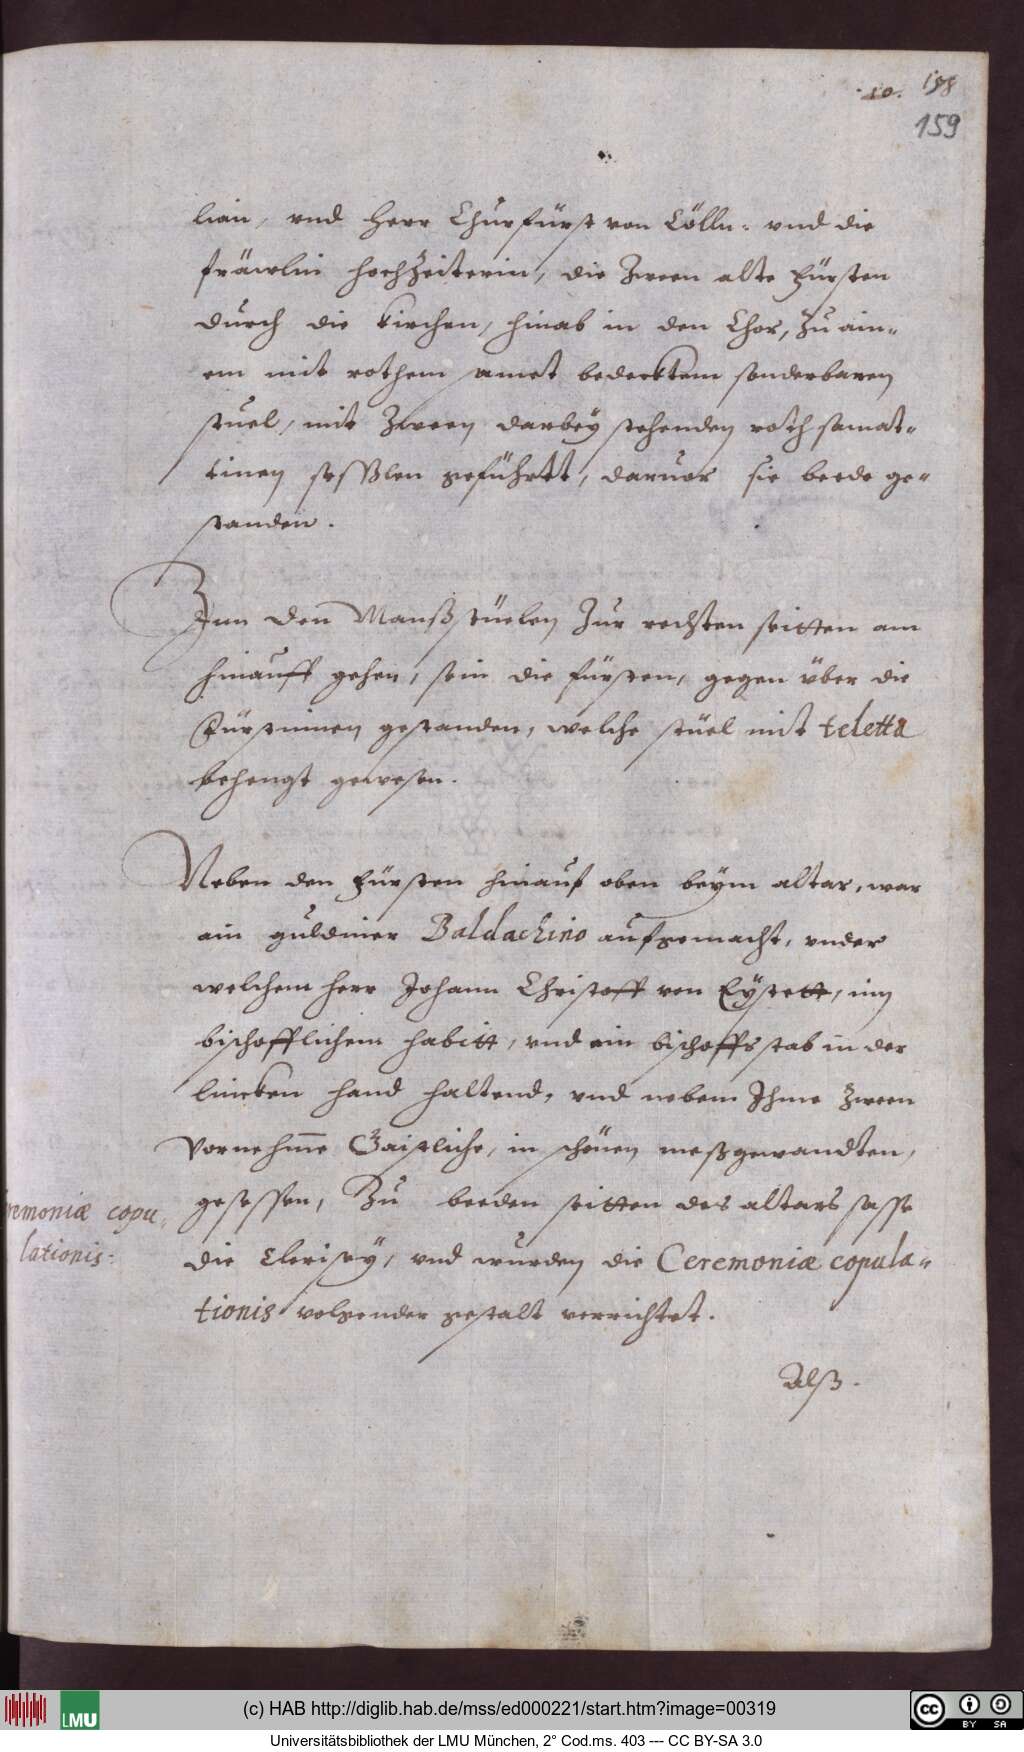 10. 158
159
lian, vnd Herr Churfürst von Cölln, vnd die
fräwlin hochzeiterin, die Zween alte Fürsten
durch die Kirchen, hinab in den Chor, zu ain-
em mit rothem samet bedecktem sonderbaren
stuel, mit Zween darbey stehenden roth samat-
tinen sesßlen geführtt, daruor sie beede ge-
standen.
Inn den Manßstüelen Zur rechten seitten am
hinauff gehen, sein die fürsten, gegen über die
Fürstinnen gestanden, welche stüel mit teletta
behengt gewesen.
Neben den Fürsten hinauf oben beym altar, war
ain guldiner Baldachino aufgemacht, vnder
welchem herr Johann Christoff von Eystett, im
bischofflichem habitt, vnd ein bischoffsstab in der
lincken hand haltend, vnd nebem Ihme Zween
Vornehme Gaistliche, in schönen meßgewandten,
gesessen, Zu beeden seitten des altars sasse
die Clerisey, vnd wurden die Ceremoniæ copula-
tionis volgender gestalt verrichtet.
Alß.
remoniæ copu,
lationis.
(c) HAB http://diglib.hab.de/mss/ed000221/start.htm?image=00319
LMU
cc BY SA
Universitätsbibliothek der LMU München, 2° Cod.ms. 403 --- CC BY-SA 3.0